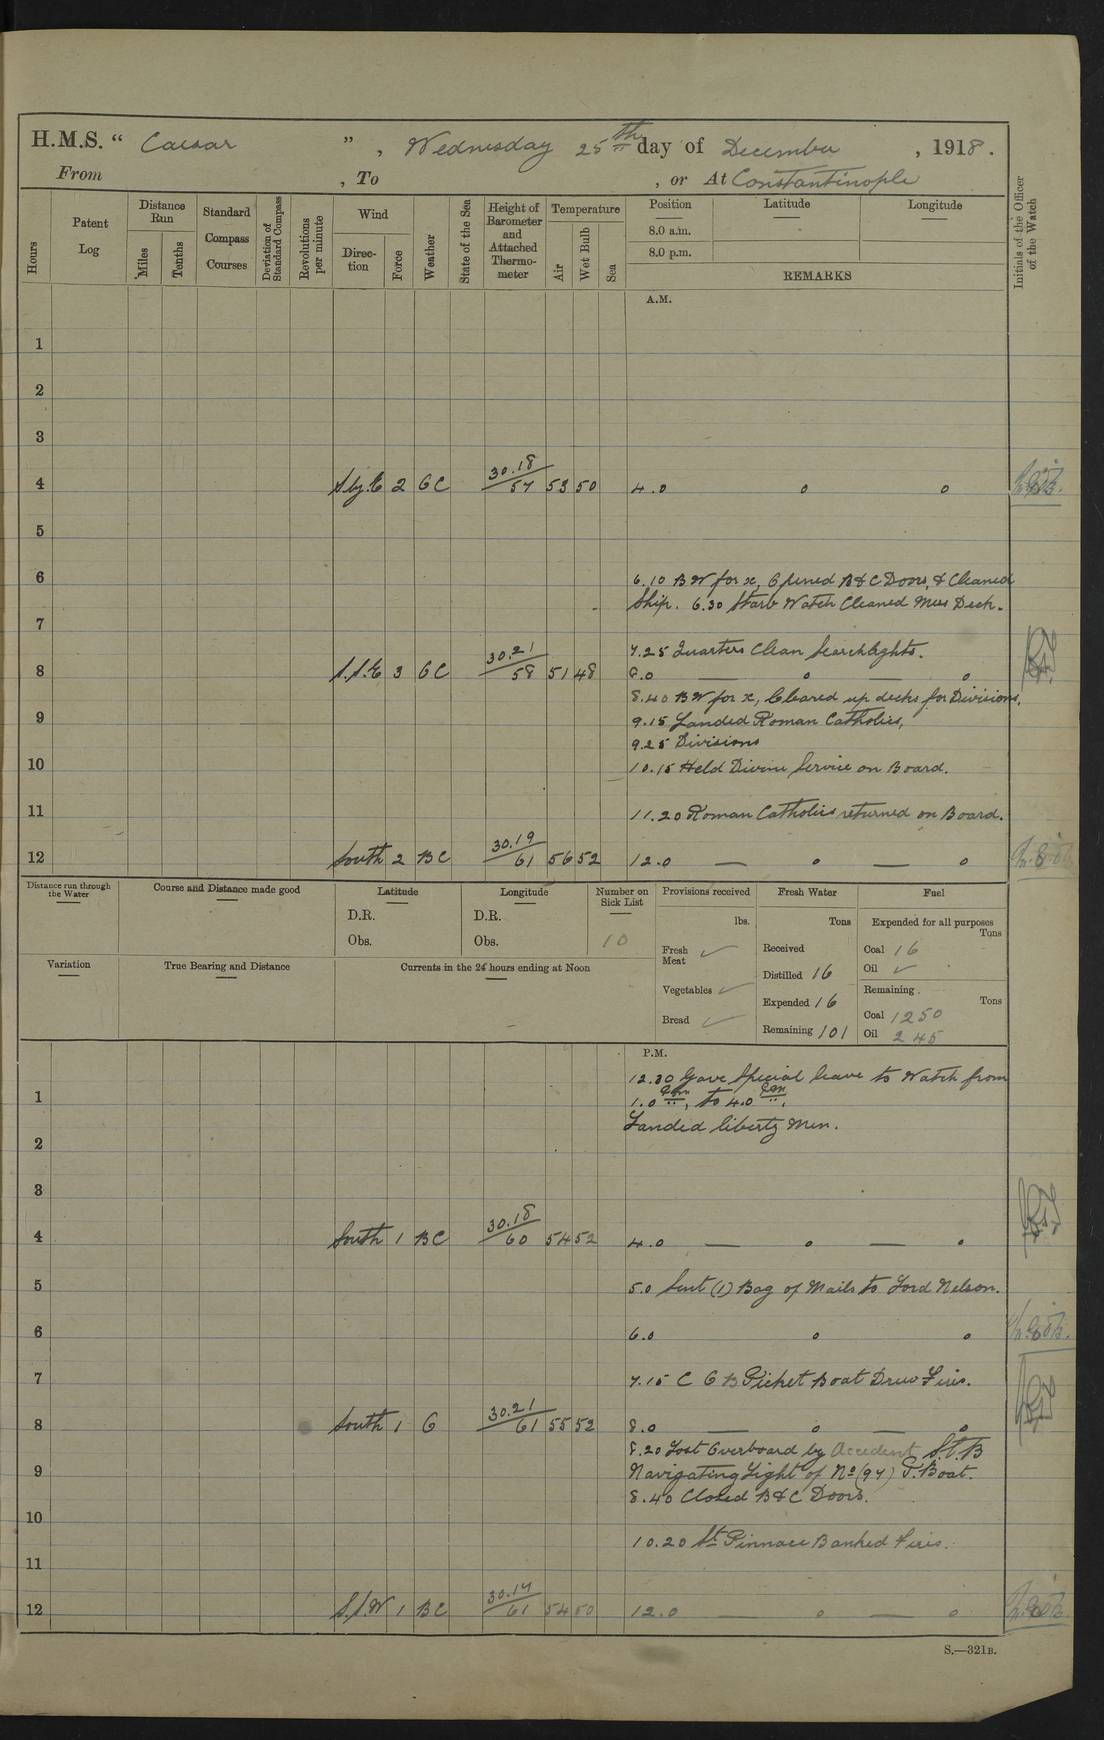 H.M.S. “ Caesar ” , Wednesday 25th day of December , 1918.
From , To , or At Constantinople
Hours
Patent Log
Distance Run
Miles
Tenths
Standard Compass Courses
Deviation of Standard Compass
Revolutions per minute
Wind
Direction
Force
Weather
State of the Sea
Height of Barometer and Attached Thermometer
Temperature
Air
Wet Bulb
Sea
Position
Latitude
Longitude
8.0 a.m.
8.0 p.m.
REMARKS
Initials of the Officer of the Watch
A.M.
1
2
3
4 S by E 2 BC 30.18/57 53 50 4.0
5
6 6.10 BW for x, Opened B & C Doors, & Cleaned
Ship. 6.30 Starb Watch Cleaned Mess Deck.
7
7.25 Quarters Clean Searchlights.
8 S.S.E 3 BC 30.21/58 51 48 8.0
8.40 BW for x, Cleared up decks for Divisions,
9 9.15 Landed Roman Catholics,
9.25 Divisions
10 10.15 Held Divine Service on Board.
11 11.20 Roman Catholics returned on Board.
12 South 2 BC 30.19/61 56 52 12.0
Distance run through the Water
Course and Distance made good
Latitude
D.R.
Obs.
Longitude
D.R.
Obs.
Number on Sick List
10
Provisions received
lbs.
Fresh Meat ✓
Vegetables ✓
Bread ✓
Fresh Water
Tons
Received
Distilled 16
Expended 16
Remaining 101
Fuel
Expended for all purposes
Tons
Coal 16
Oil ✓
Remaining
Tons
Coal 1250
Oil 245
Variation
True Bearing and Distance
Currents in the 24 hours ending at Noon
P.M.
12.30 Gave Special leave to Watch from
1 1.0 pm, to 4.0 pm.
Landed liberty Men.
2
3
4 South 1 BC 30.18/60 54 52 4.0
5 5.0 Sent (1) Bag of Mails to Lord Nelson.
6 6.0
7 7.15 C O B Picket Boat Drew Fires.
8 South 1 C 30.21/61 55 52 8.0
8.20 Lost Overboard by Accident S.T.B
9 Navigating Light of No (97) P. Boat.
8.40 Closed B & C Doors.
10
10.20 St Pinnace Banked Fires.
11
12 S.S.W 1 BC 30.17/61 54 50 12.0
S.—321B.